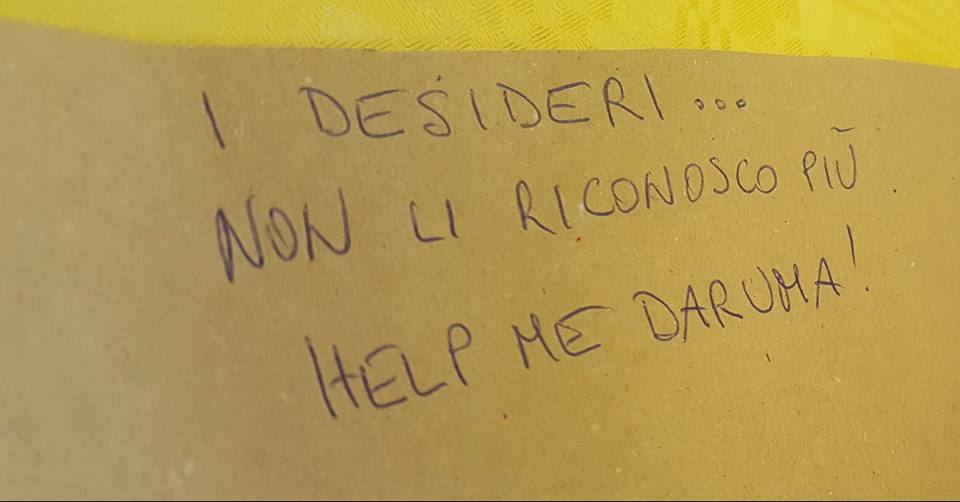 I DESIDERI...
NON LI RICONOSCO PIÙ.
HELP ME DARUMA!